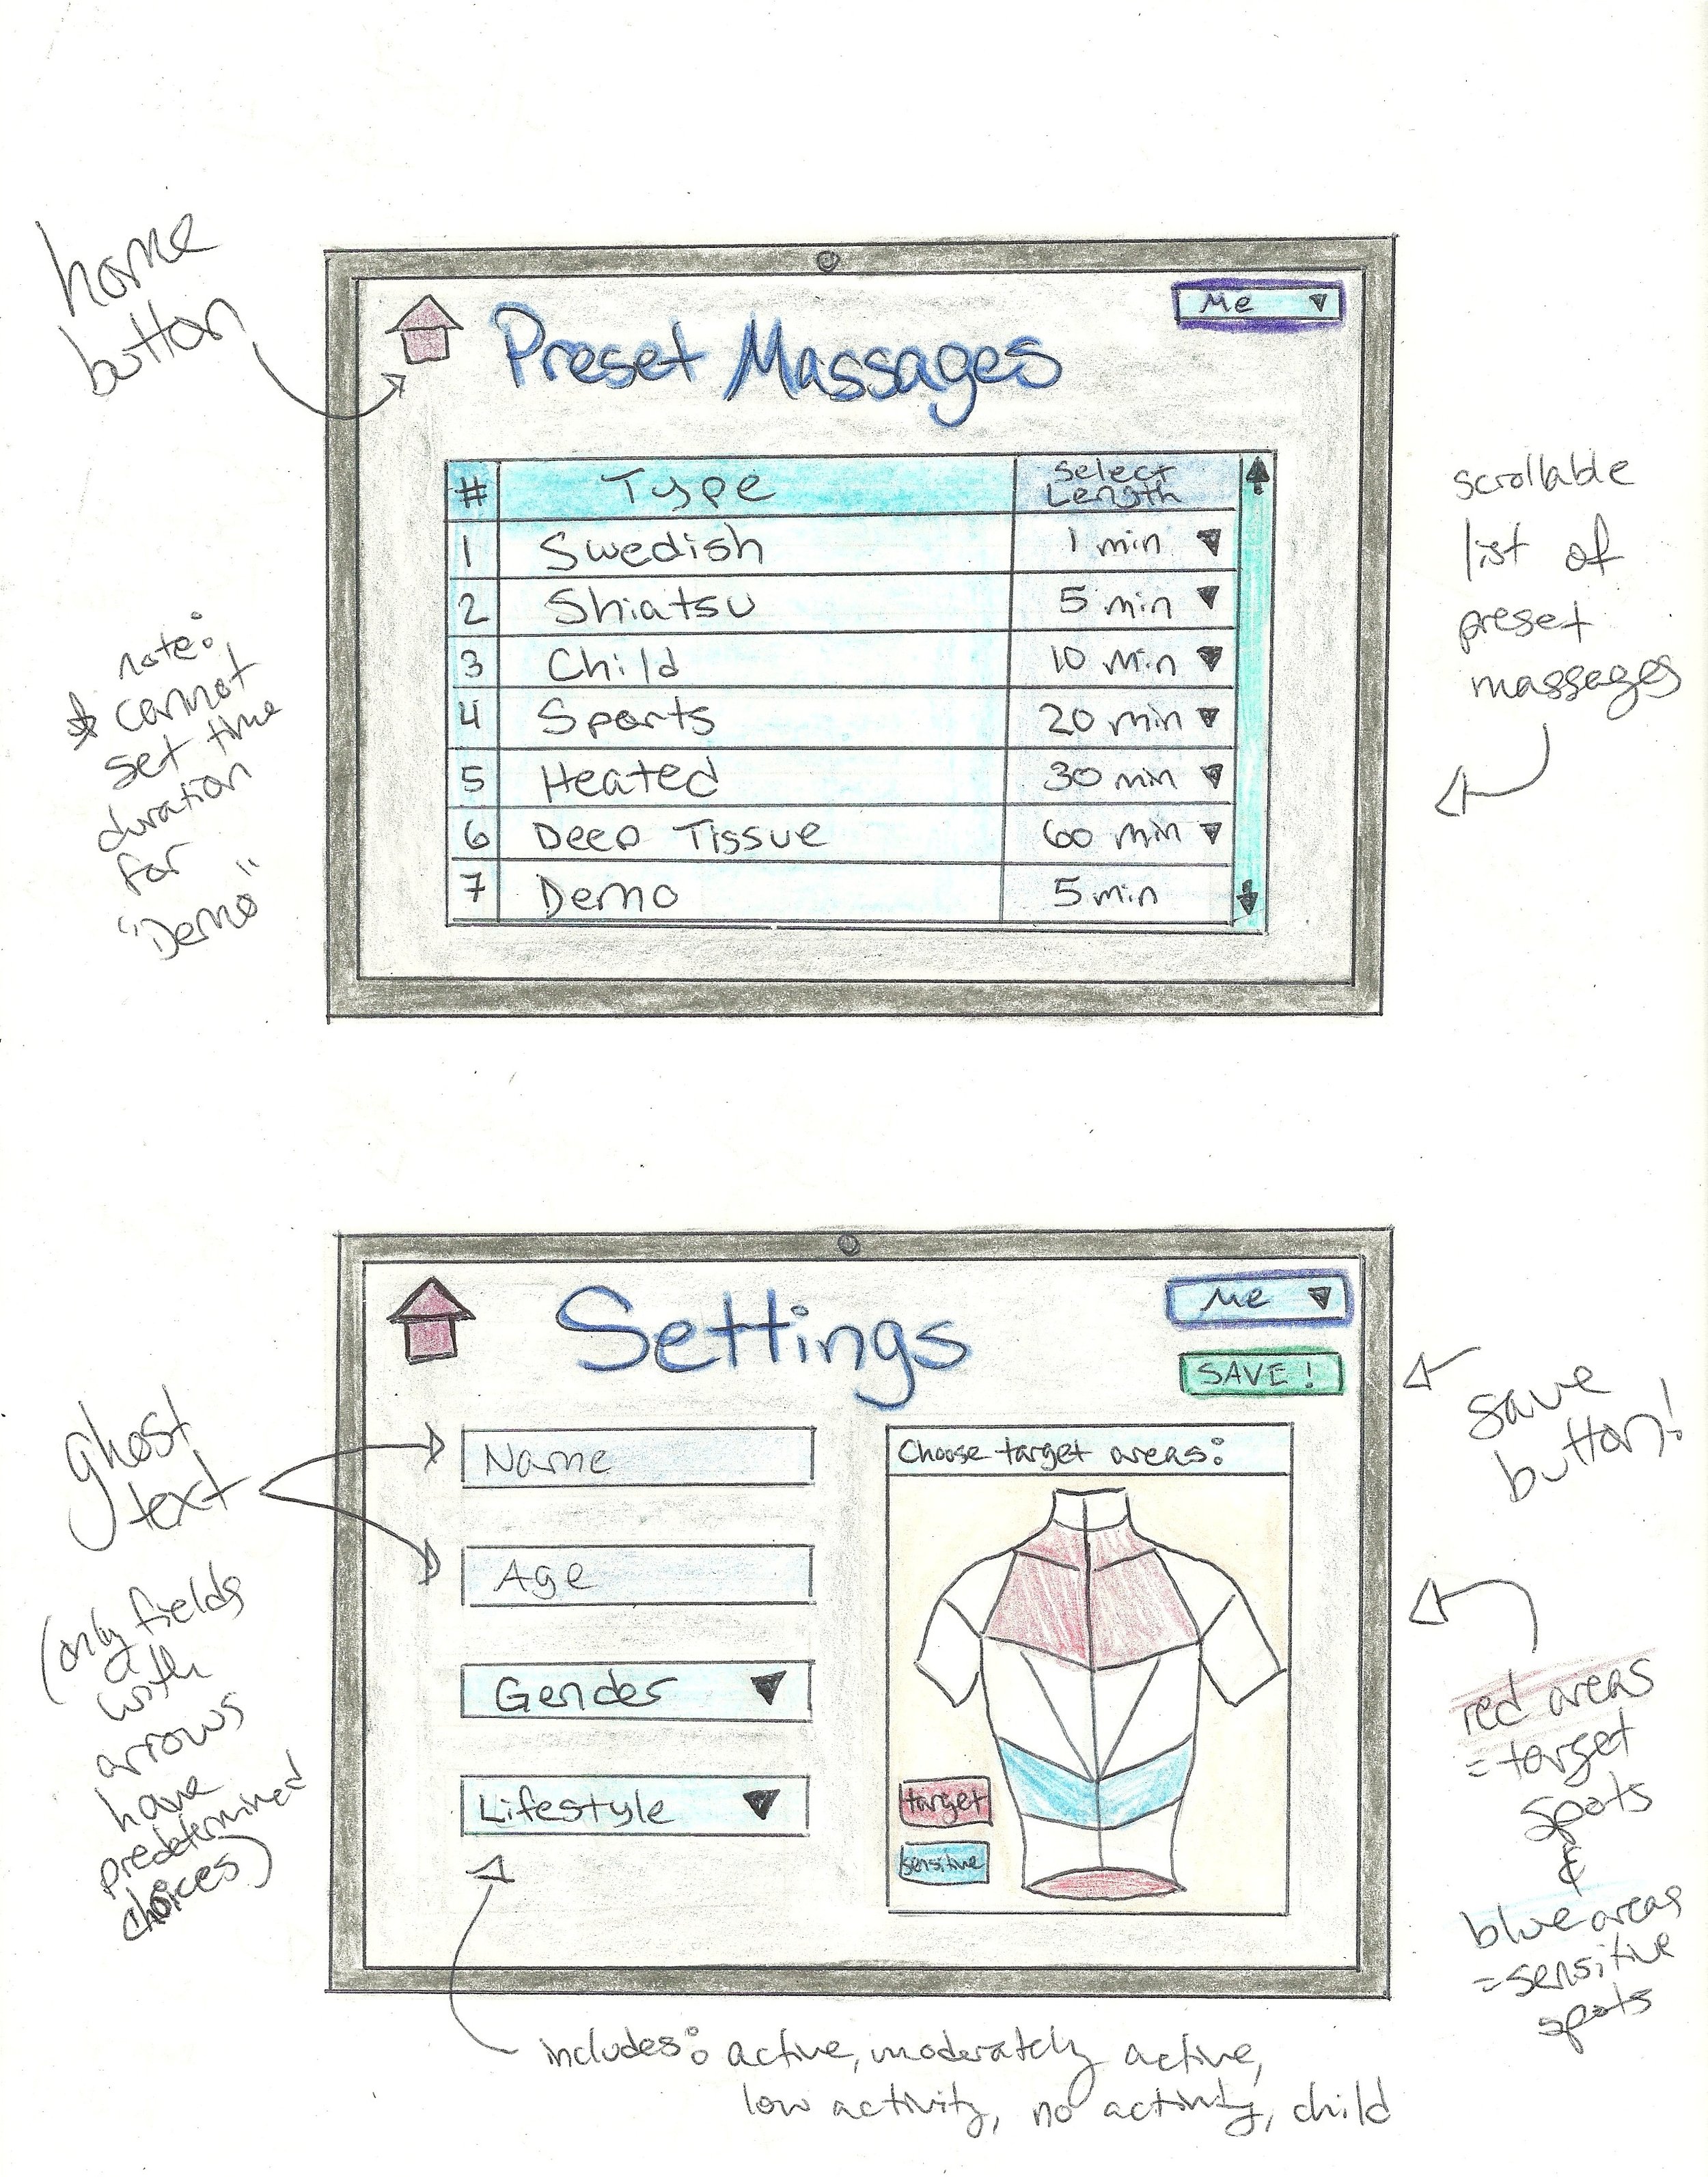 home
button
Me
Preset Massages
# Type Select Length
1 Swedish 1 min
2 Shiatsu 5 min
3 Child 10 min
4 Sports 20 min
5 Heated 30 min
6 Deep Tissue 60 min
7 Demo 5 min
scrollable
list of
preset
massages
note:
* cannot
set time
duration
for
"Demo"
Me
Settings
SAVE!
save
button!
ghost
text
(only fields
with
arrows
have
predetermined
choices)
Name
Age
Gender
Lifestyle
Choose target areas:
target
sensitive
red areas
=target
spots
&
blue areas
=sensitive
spots
includes: active, moderately active,
low activity, no activity, child